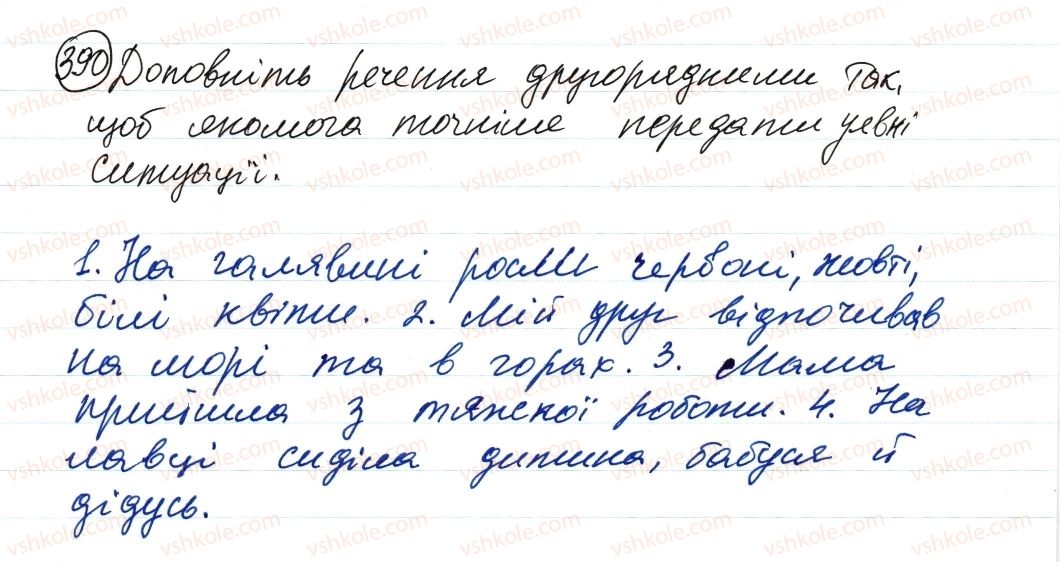 390 Доповніть речення другорядними так,
щоб якомога точніше передати уявні
ситуації.
1. На галявині росли червоні, жовті,
білі квіти. 2. Мій друг відпочивав
на морі та в горах. 3. Мама
прийшла з тяжкої роботи. 4. На
лавці сиділа дитина, бабуся й
дідусь.